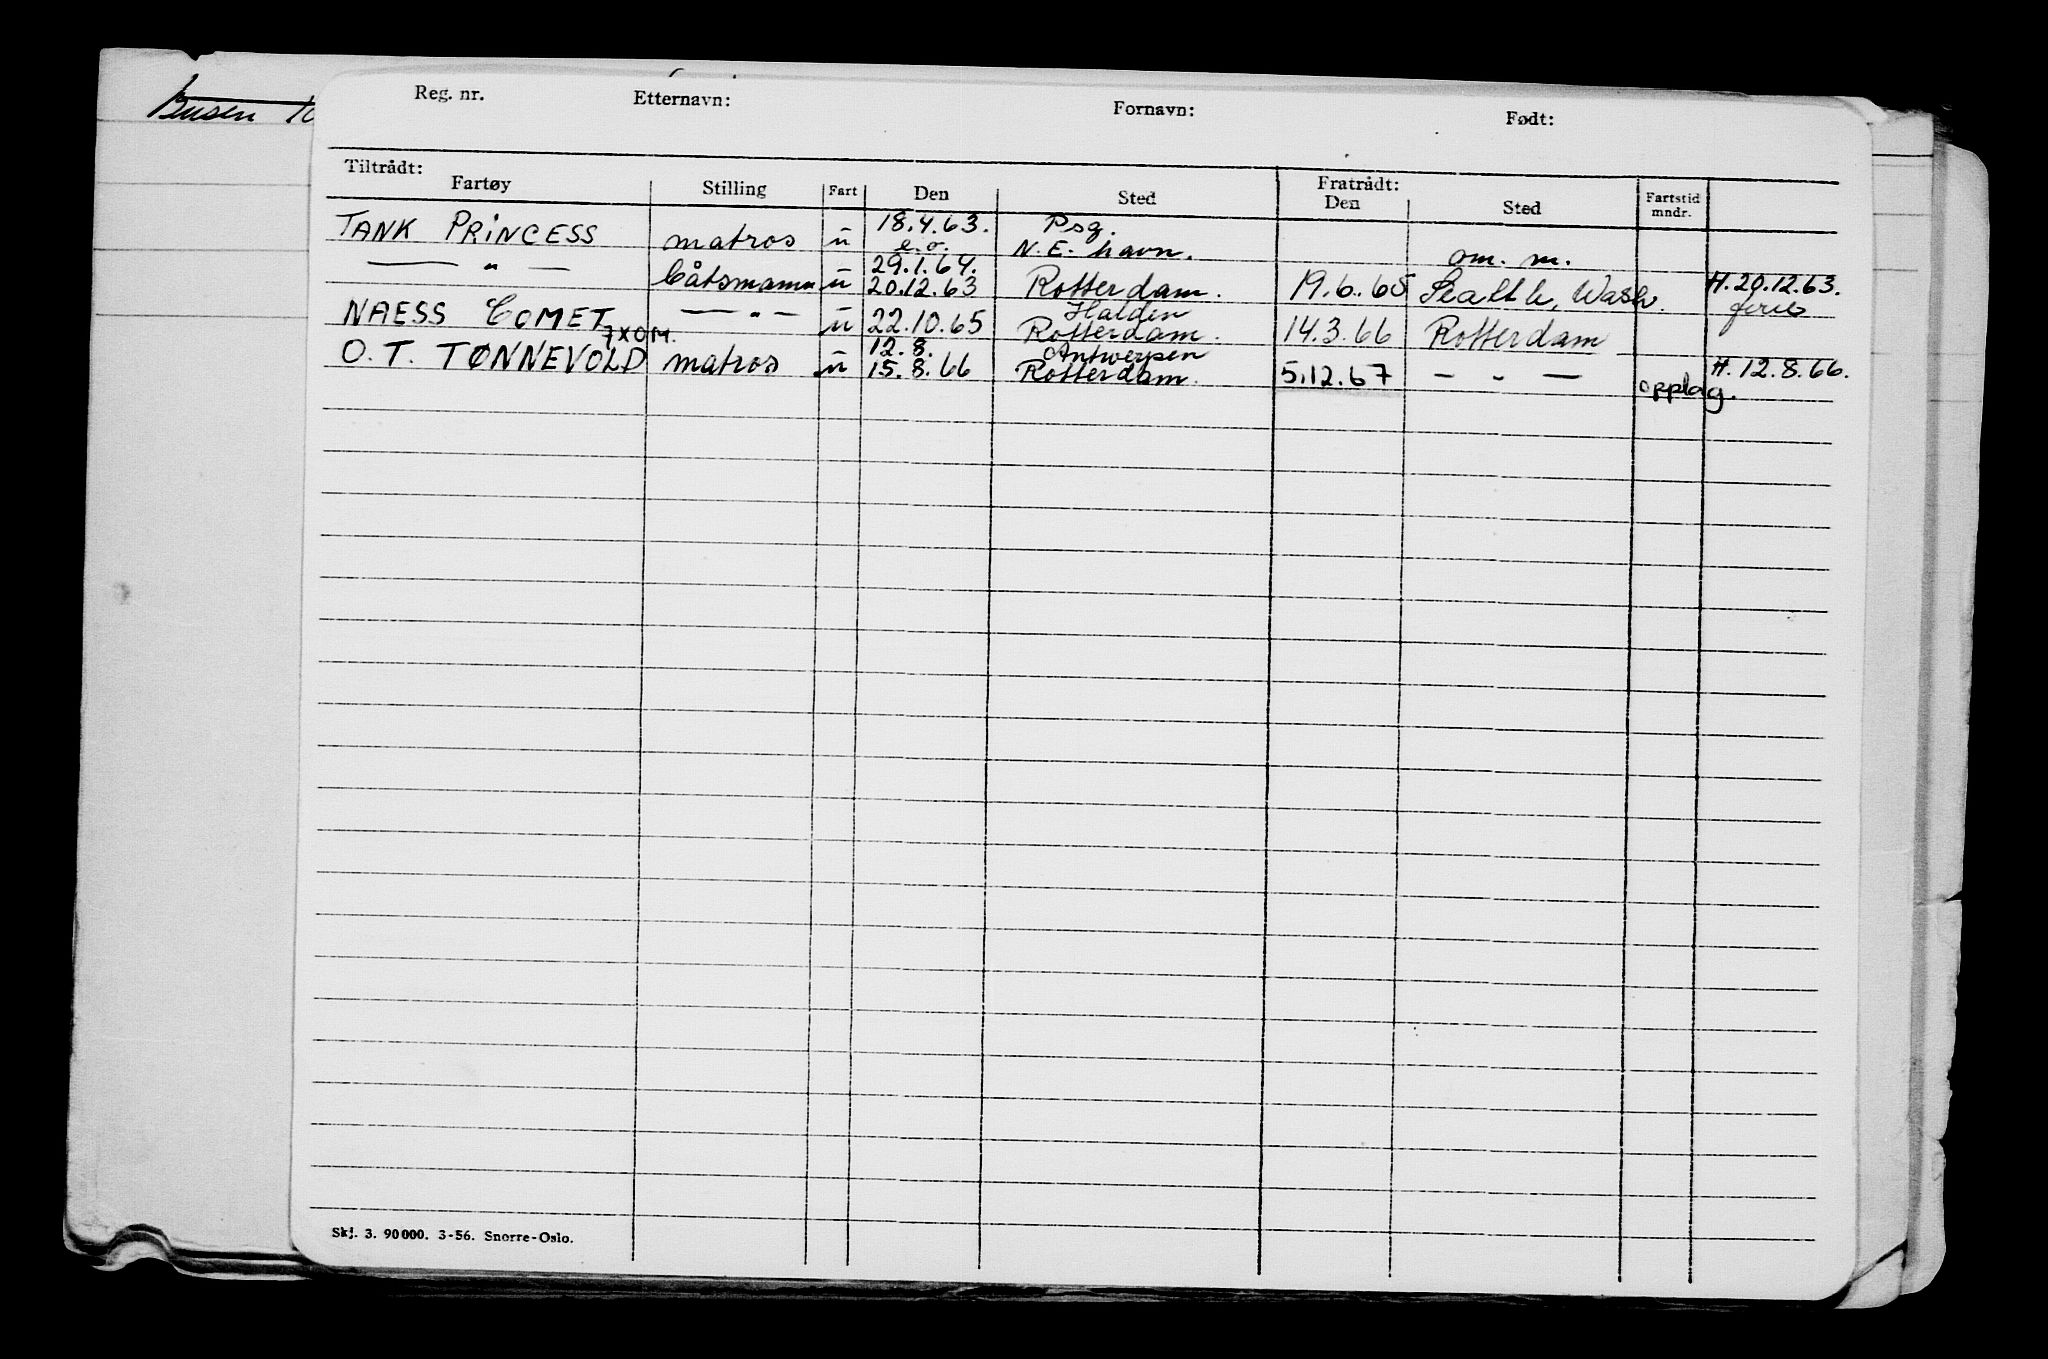 Busen
Reg. nr. Etternavn: Fornavn: Født:
Tiltrådt: Fratrådt:
Fartøy Stilling Fart Den Sted Den Sted Fartstid mndr.
TANK PRINCESS matros ū 18.4.63. Psg.
e.o. N.E. havn. om. m.
— " — båtsmann ū 29.1.64.
20.12.63 Rotterdam. 19.6.65 Seattle, Wash. H. 20.12.63.
NAESS COMET — " — ū 22.10.65 Halden ferie
Rotterdam. 14.3.66 Rotterdam
7XOM. 12.8. Antwerpen
O.T. TØNNEVOLD matros ū 15.8.66 Rotterdam. 5.12.67 — " — H. 12.8.66.
opplag.
Skj. 3. 90000. 3-56. Snorre-Oslo.